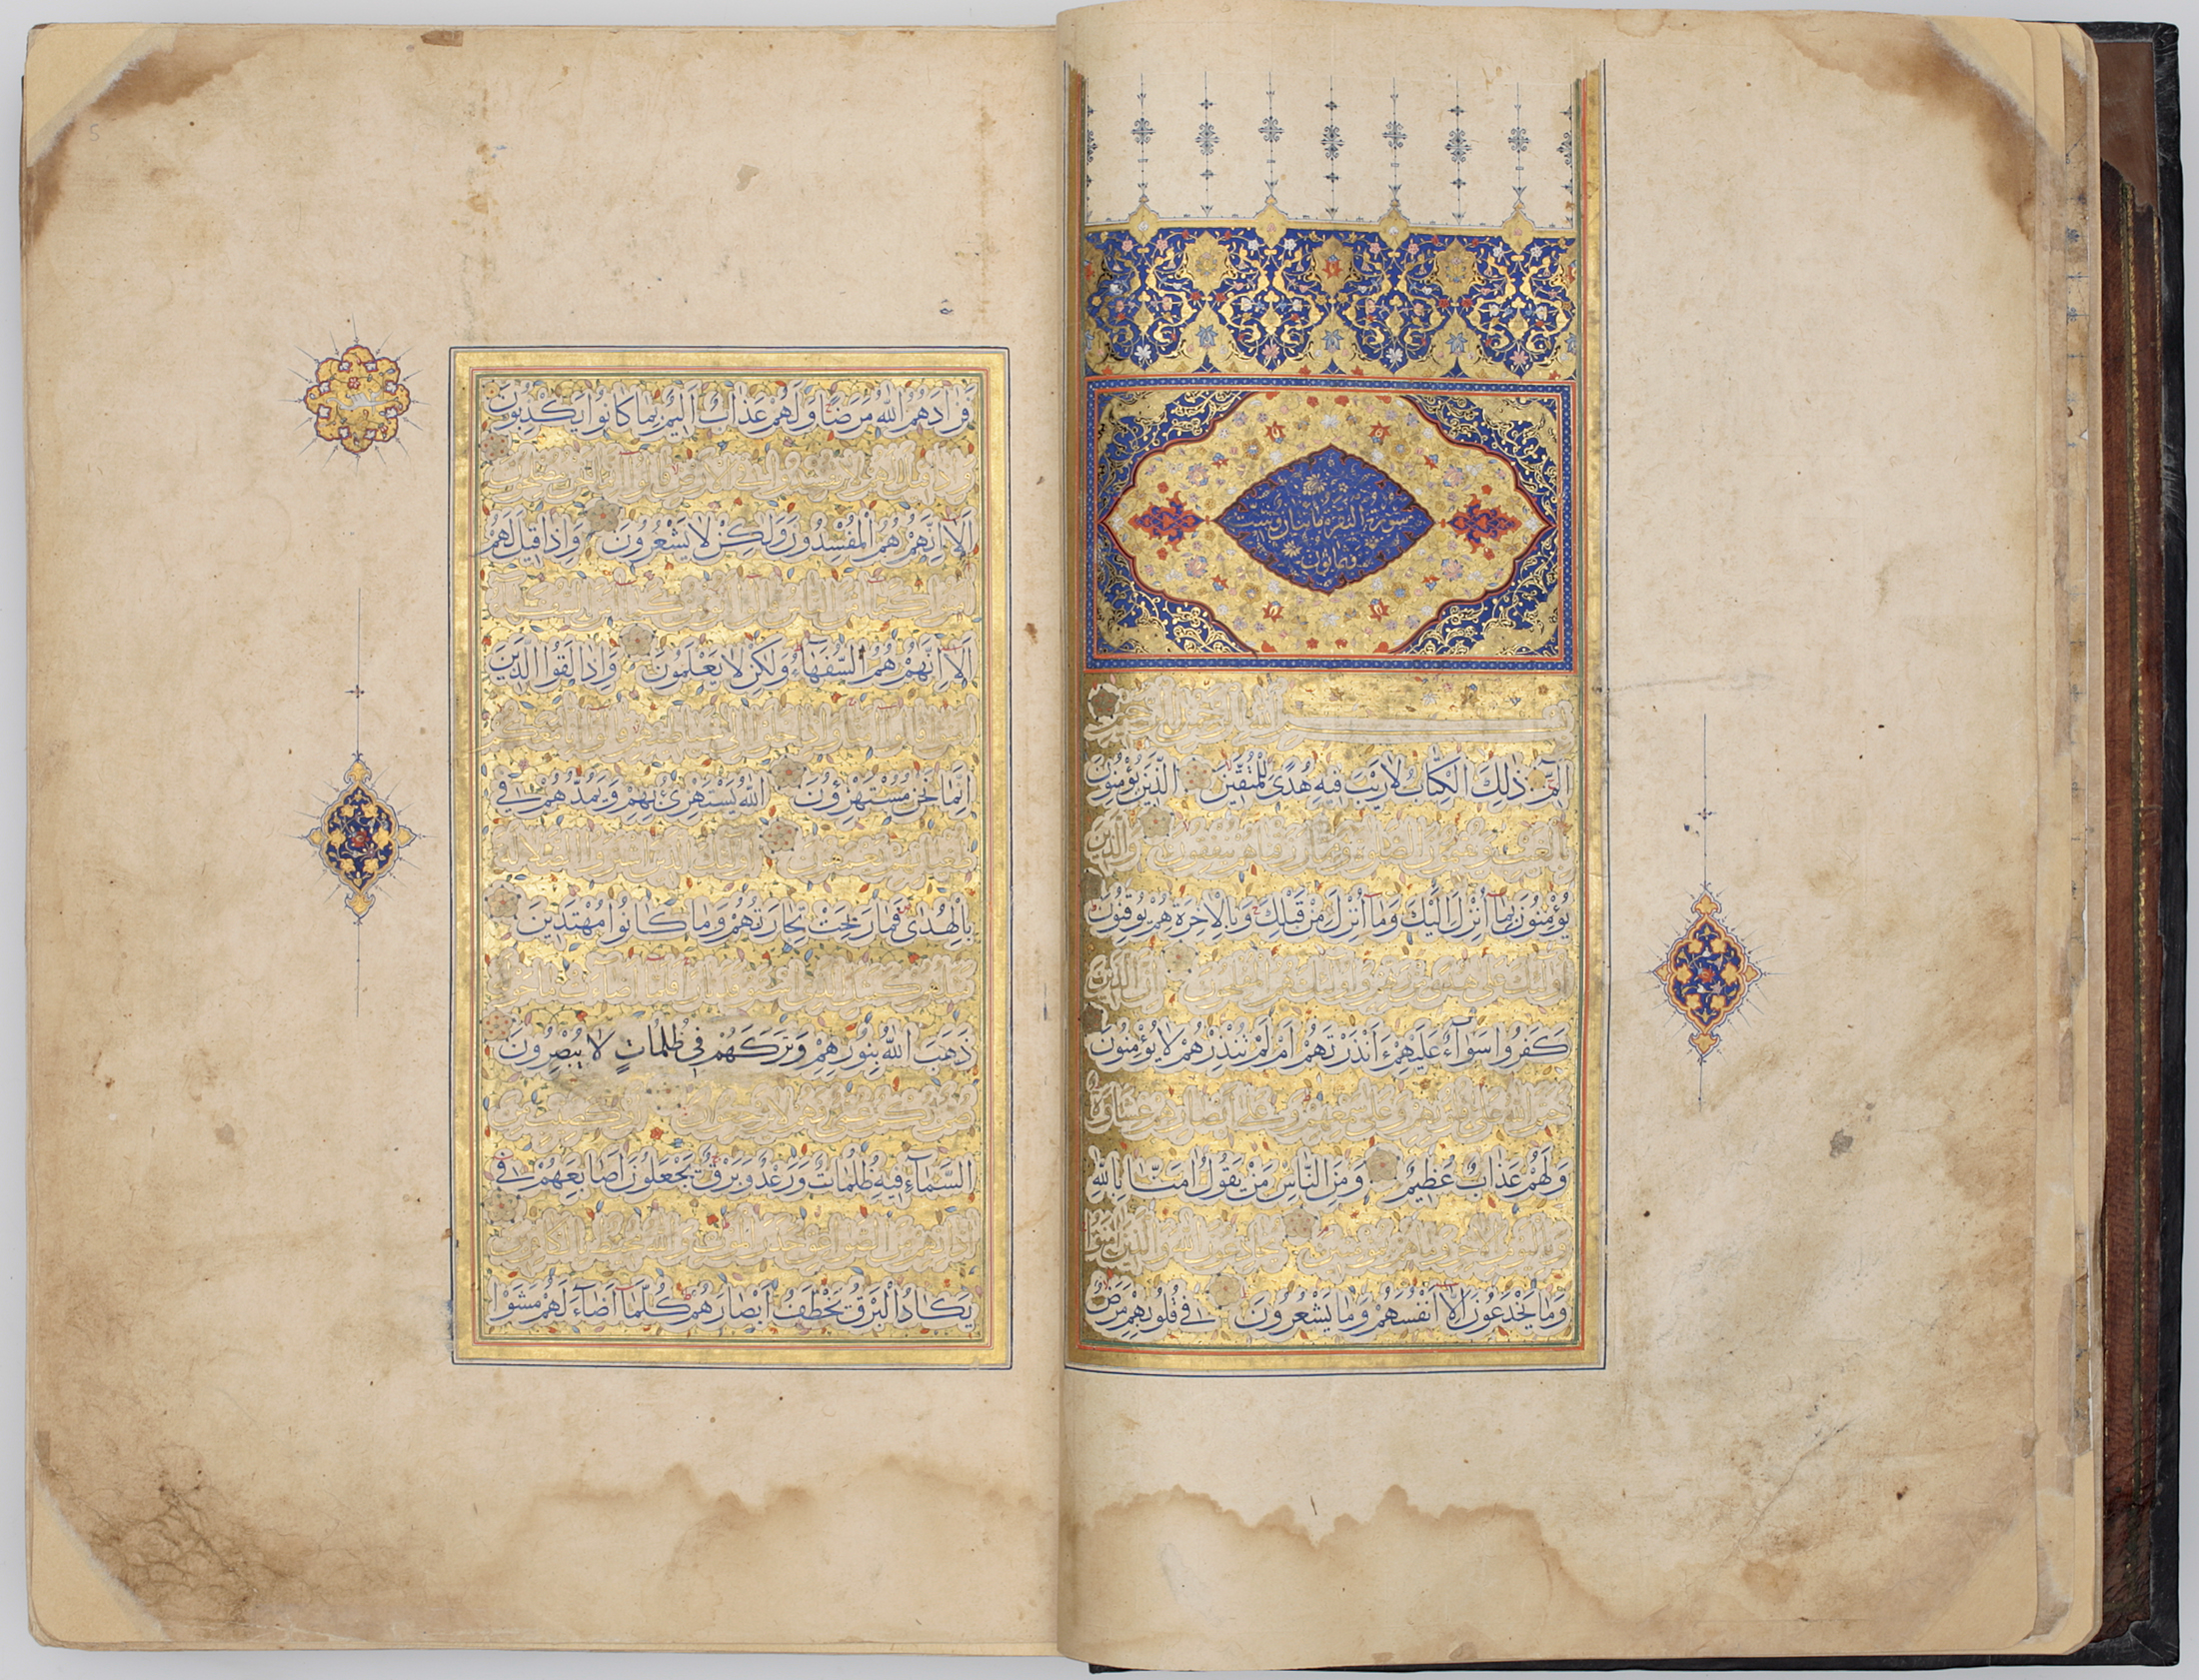 سورة البقرة مائتان وست
وثمانون
بسم الله الرحمن الرحيم
الٓمٓ ذٰلِكَ الْكِتَابُ لَا رَيْبَ فِيهِ هُدًى لِلْمُتَّقِينَ الَّذِينَ يُؤْمِنُونَ
بالغيب ويقيمون الصلوة ومما رزقناهم ينفقون والذين
يُؤْمِنُونَ بِمَآ اُنْزِلَ اِلَيْكَ وَمَآ اُنْزِلَ مِنْ قَبْلِكَ وَبِالْاٰخِرَةِ هُمْ يُوقِنُونَ
اولئك على هدى من ربهم واولئك هم المفلحون ان الذين
كَفَرُوا سَوَآءٌ عَلَيْهِمْ ءَاَنْذَرْتَهُمْ اَمْ لَمْ تُنْذِرْهُمْ لَا يُؤْمِنُونَ
ختم الله على قلوبهم وعلى سمعهم وعلى ابصارهم غشاوة
وَلَهُمْ عَذَابٌ عَظِيمٌ وَمِنَ النَّاسِ مَنْ يَقُولُ اٰمَنَّا بِاللّٰهِ
وباليوم الاخر وما هم بمؤمنين يخادعون الله والذين امنوا
وَمَا يَخْدَعُونَ اِلَّآ اَنْفُسَهُمْ وَمَا يَشْعُرُونَ فِى قُلُوبِهِمْ مَرَضٌ
فَزَادَهُمُ اللّٰهُ مَرَضًا وَلَهُمْ عَذَابٌ اَلِيمٌ بِمَا كَانُوا يَكْذِبُونَ
واذا قيل لهم لا تفسدوا فى الارض قالوا انما نحن مصلحون
اَلَآ اِنَّهُمْ هُمُ الْمُفْسِدُونَ وَلٰكِنْ لَا يَشْعُرُونَ وَاِذَا قِيلَ لَهُمْ
امنوا كما امن الناس قالوا انؤمن كما امن السفهاء
اَلَآ اِنَّهُمْ هُمُ السُّفَهَآءُ وَلٰكِنْ لَا يَعْلَمُونَ وَاِذَا لَقُوا الَّذِينَ
امنوا قالوا امنا واذا خلوا الى شياطينهم قالوا انا معكم
اِنَّمَا نَحْنُ مُسْتَهْزِؤُنَ اَللّٰهُ يَسْتَهْزِئُ بِهِمْ وَيَمُدُّهُمْ فِى
طغيانهم يعمهون اولئك الذين اشتروا الضلالة
بِالْهُدٰى فَمَا رَبِحَتْ تِجَارَتُهُمْ وَمَا كَانُوا مُهْتَدِينَ
مثلهم كمثل الذى استوقد نارا فلما اضاءت ما حوله
ذَهَبَ اللّٰهُ بِنُورِهِمْ وَتَرَكَهُمْ فِى ظُلُمَاتٍ لَا يُبْصِرُونَ
صم بكم عمى فهم لا يرجعون او كصيب من
السَّمَآءِ فِيهِ ظُلُمَاتٌ وَرَعْدٌ وَبَرْقٌ يَجْعَلُونَ اَصَابِعَهُمْ فِى
اذانهم من الصواعق حذر الموت والله محيط بالكافرين
يَكَادُ الْبَرْقُ يَخْطَفُ اَبْصَارَهُمْ كُلَّمَآ اَضَآءَ لَهُمْ مَشَوْا